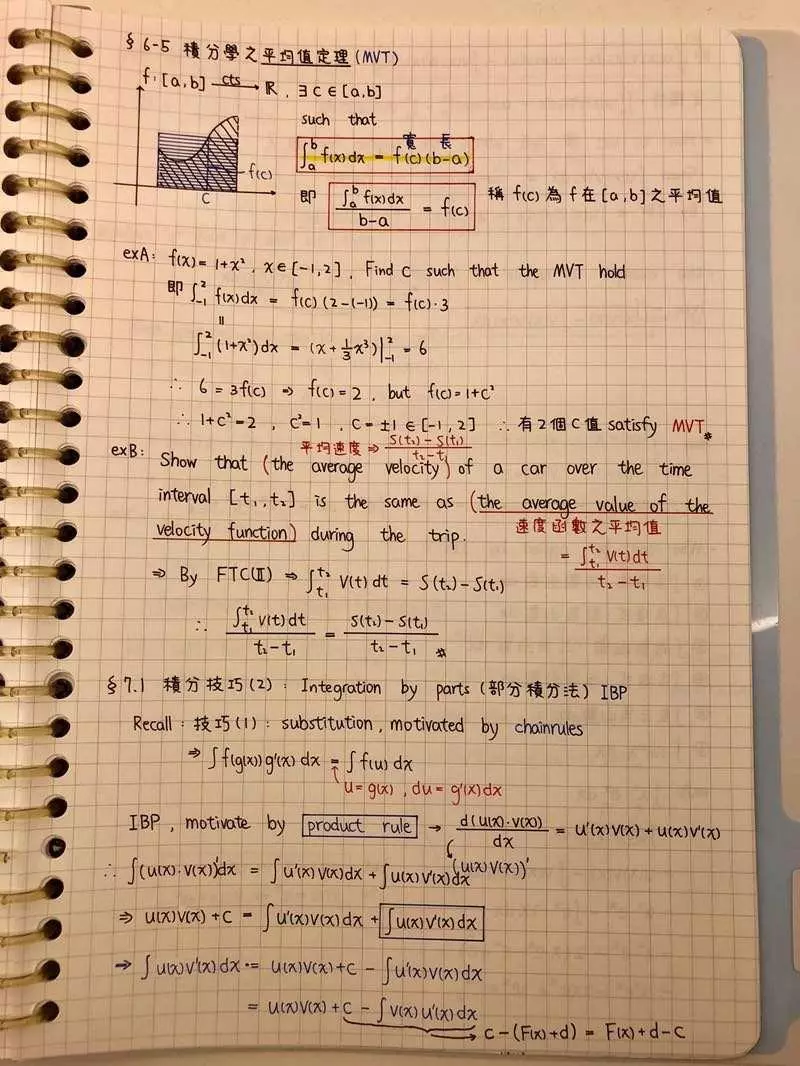 § 6-5 積分學之平均值定理 (MVT)
f: [a,b] cts→ ℝ, ∃ c ∈ [a,b]
such that
寬 長
∫_a^b f(x)dx = f(c)(b-a)
f(c)
c
即 ∫_a^b f(x)dx / b-a = f(c) 稱 f(c) 為 f 在 [a,b] 之平均值
exA: f(x) = 1+x², x ∈ [-1,2], Find c such that the MVT hold
即 ∫_-1^2 f(x)dx = f(c)(2-(-1)) = f(c)·3
॥
∫_-1^2 (1+x²)dx = (x+⅓x³)|_-1^2 = 6
∴ 6 = 3f(c) ⇒ f(c) = 2, but f(c) = 1+c²
∴ 1+c² = 2, c² = 1, c = ±1 ∈ [-1,2] ∴ 有2個C值 satisfy MVT.※
平均速度 ⇒ S(t₂)-S(t₁) / t₂-t₁
exB: Show that (the average velocity) of a car over the time
interval [t₁,t₂] is the same as (the average value of the
velocity function) during the trip.
速度函數之平均值
= ∫_t₁^t₂ V(t)dt / t₂-t₁
⇒ By FTC(Ⅱ) ⇒ ∫_t₁^t₂ V(t)dt = S(t₂)-S(t₁)
∴ ∫_t₁^t₂ V(t)dt / t₂-t₁ = S(t₂)-S(t₁) / t₂-t₁ ※
§ 7.1 積分技巧(2): Integration by parts (部分積分法) IBP
Recall: 技巧(1): substitution, motivated by chainrules
⇒ ∫f(g(x))g'(x)dx = ∫f(u)dx
u = g(x), du = g'(x)dx
IBP, motivate by product rule → d(u(x)·v(x))/dx = u'(x)v(x)+u(x)v'(x)
(u(x)v(x))'
∴ ∫(u(x)·v(x))'dx = ∫u'(x)v(x)dx + ∫u(x)v'(x)dx
⇒ u(x)v(x)+c = ∫u'(x)v(x)dx + ∫u(x)v'(x)dx
⇒ ∫u(x)v'(x)dx = u(x)v(x)+c - ∫u'(x)v(x)dx
= u(x)v(x)+c - ∫v(x)u'(x)dx
⇒ c-(F(x)+d) = F(x)+d-c